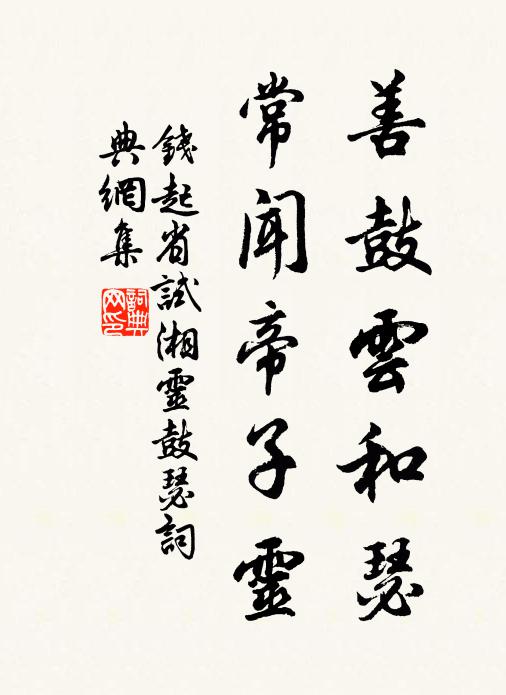 善鼓雲和瑟
常聞帝子靈
錢起省試湘靈鼓瑟詞
典網集
詞典
网印